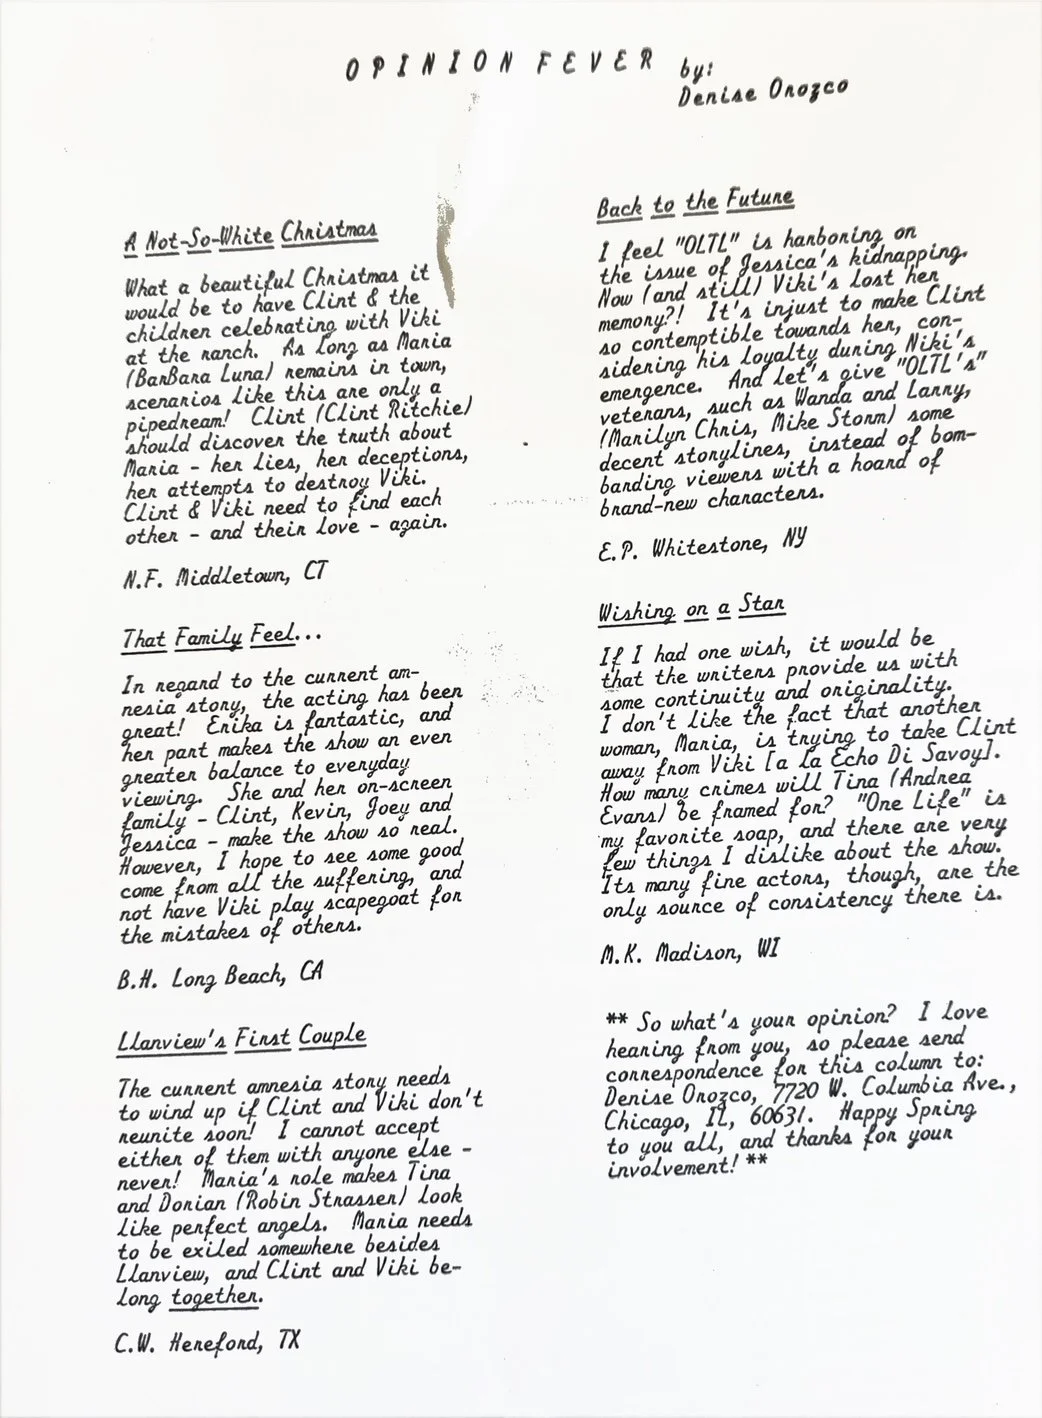 OPINION FEVER
by:
Denise Orozco
A Not-So-White Christmas
What a beautiful Christmas it
would be to have Clint & the
children celebrating with Viki
at the ranch. As long as Maria
(BarBara Luna) remains in town,
scenarios like this are only a
pipedream! Clint (Clint Ritchie)
should discover the truth about
Maria - her lies, her deceptions,
her attempts to destroy Viki.
Clint & Viki need to find each
other - and their love - again.
N.F. Middletown, CT
That Family Feel...
In regard to the current am-
nesia story, the acting has been
great! Erika is fantastic, and
her part makes the show an even
greater balance to everyday
viewing. She and her on-screen
family - Clint, Kevin, Joey and
Jessica - make the show so real.
However, I hope to see some good
come from all the suffering, and
not have Viki play scapegoat for
the mistakes of others.
B.H. Long Beach, CA
Llanview's First Couple
The current amnesia story needs
to wind up if Clint and Viki don't
reunite soon! I cannot accept
either of them with anyone else -
never! Maria's role makes Tina
and Dorian (Robin Strasser) look
like perfect angels. Maria needs
to be exiled somewhere besides
Llanview, and Clint and Viki be-
long together.
C.W. Hereford, TX
Back to the Future
I feel "OLTL" is harboring on
the issue of Jessica's kidnapping.
Now (and still) Viki's lost her
memory?! It's injust to make Clint
so contemptible towards her, con-
sidering his loyalty during Niki's
emergence. And let's give "OLTL's"
veterans, such as Wanda and Larry,
(Marilyn Chris, Mike Storm) some
decent storylines, instead of bom-
barding viewers with a hoard of
brand-new characters.
E.P. Whitestone, NY
Wishing on a Star
If I had one wish, it would be
that the writers provide us with
some continuity and originality.
I don't like the fact that another
woman, Maria, is trying to take Clint
away from Viki [a la Echo Di Savoy].
How many crimes will Tina (Andrea
Evans) be framed for? "One Life" is
my favorite soap, and there are very
few things I dislike about the show.
Its many fine actors, though, are the
only source of consistency there is.
M.K. Madison, WI
** So what's your opinion? I love
hearing from you, so please send
correspondence for this column to:
Denise Orozco, 7720 W. Columbia Ave.,
Chicago, IL, 60631. Happy Spring
to you all, and thanks for your
involvement! **